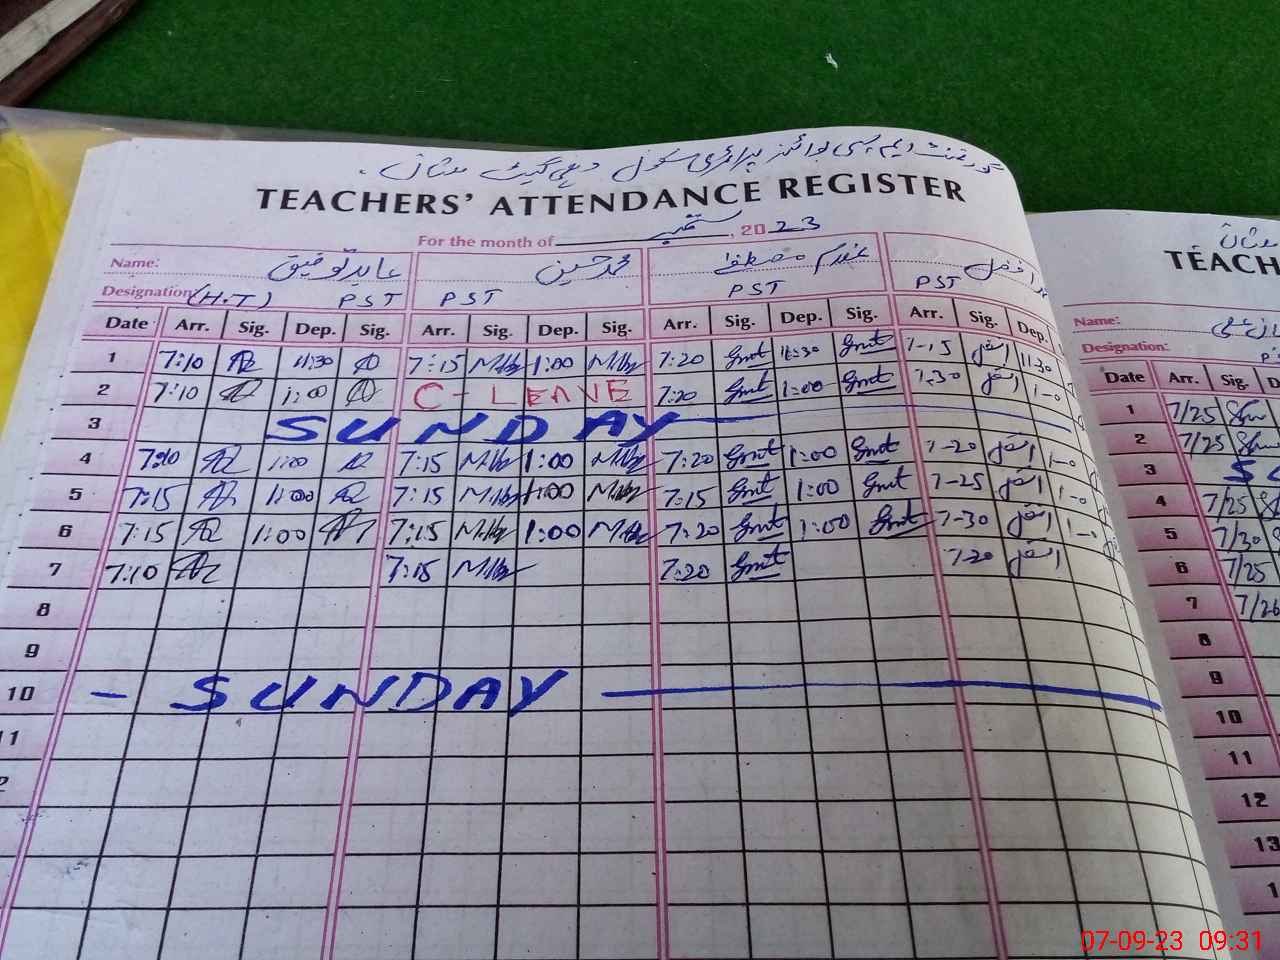 گورنمنٹ ایم سی بوائز پرائمری سکول دہلی گیٹ ملتان
TEACHERS' ATTENDANCE REGISTER
For the month of ستمبر, 2023
Name: عابد توفیق محمد حسین غلام مصطفیٰ افضل
Designation (H.T) PST PST PST PST
Date Arr. Sig. Dep. Sig. Arr. Sig. Dep. Sig. Arr. Sig. Dep. Sig. Arr. Sig. Dep.
1 7:10 11:30 7:15 1:00 7:20 Gmt 11:30 Gmt 7-15 افضل 11-30
2 7:10 1:00 C - LEAVE 7:20 Gmt 1:00 Gmt 7-30 افضل 1-0
3 SUNDAY
4 7:20 1:00 7:15 1:00 7:20 Gmt 1:00 Gmt 7-20 افضل 1-0
5 7:15 1:00 7:15 1:00 7:15 Gmt 1:00 Gmt 7-25 افضل 1-0
6 7:15 1:00 7:15 1:00 7:20 Gmt 1:00 Gmt 7-30 افضل 1-0
7 7:10 7:15 7:20 Gmt 7-20 افضل
8
9
10 - SUNDAY
11
2
ملتان
TEACH
Name:
Designation:
Date Arr. Sig. D
1 7/25
2 7/25
3 S
4 7/25
5 7/30
6 7/25
7 7/26
8
9
10
11
12
13
1
07-09-23 09:31